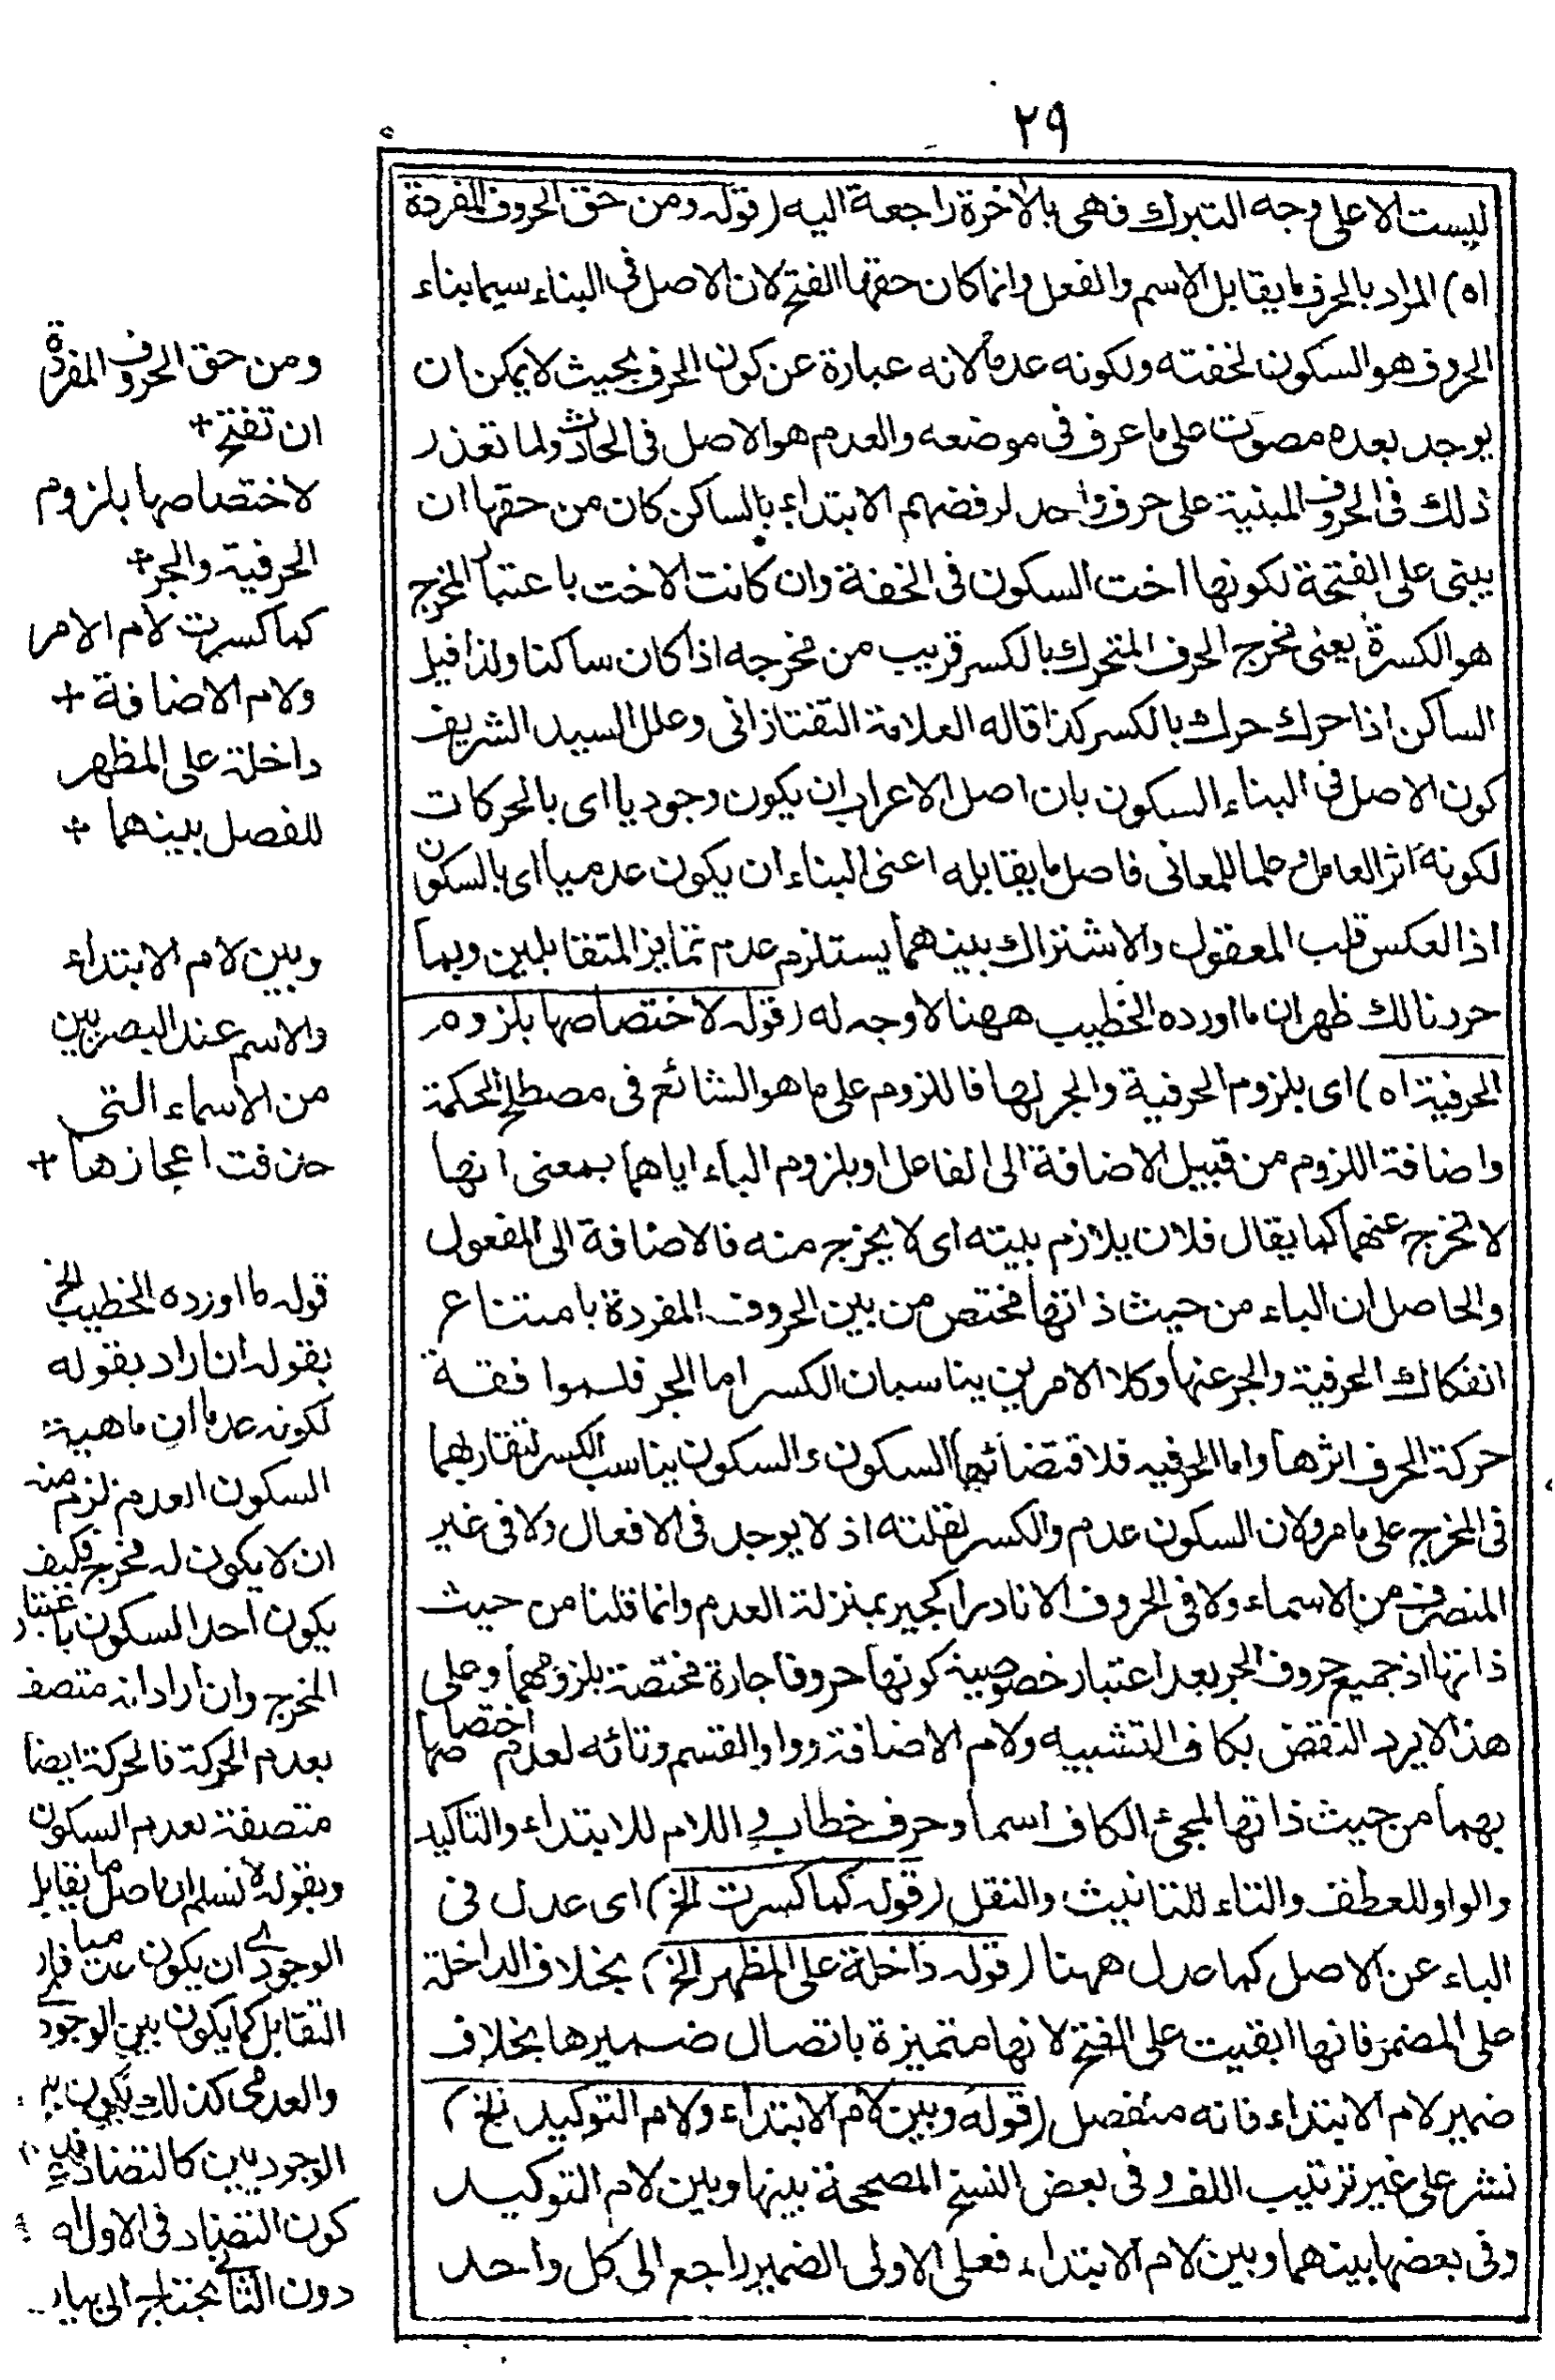 ٢٩
ليست الا على وجه التبرك فهى بالآخرة راجعة اليه (قوله ومن حق الحروف المفردة
اه) المراد بالحرف ما يقابل الاسم والفعل وانما كان حقها الفتح لان الاصل فى البناء سيما بناء
الحروف هو السكون لخفته ولكونه عدما لانه عبارة عن كون الحرف بحيث لا يمكن ان
يوجد بعده مصوت على ما عرف فى موضعه والعدم هو الاصل فى الحادث ولما تعذر
ذلك فى الحروف المبنية على حرف واحد لرفضهم الابتداء بالساكن كان من حقها ان
يبنى على الفتحة لكونها اخت السكون فى الخفة وان كانت الاخت باعتبار المخرج
هو الكسرة يعنى مخرج الحرف المتحرك بالكسر قريب من مخرجه اذا كان ساكنا ولذا قيل
الساكن اذا حرك حرك بالكسر كذا قاله العلامة التفتازانى وعلل السيد الشريف
كون الاصل فى البناء السكون بان اصل الاعراب ان يكون وجوديا اى بالحركات
لكونه اثر العامل وعلما للمعانى فاصل ما يقابله اعنى البناء ان يكون عدميا اى بالسكون
اذ العكس قلب المعقول والاشتراك بينهما يستلزم عدم تمايز المتقابلين وبما
حررنا لك ظهر ان ما اورده الخطيب ههنا لا وجه له (قوله لاختصاصها بلزوم
الحرفية اه) اى بلزوم الحرفية والجر لها فاللزوم على ما هو الشائع فى مصطلح الحكمة
واضافة اللزوم من قبيل الاضافة الى الفاعل او بلزوم الباء اياهما بمعنى انها
لا تخرج عنهما كما يقال فلان يلازم بيته اى لا يخرج منه فالاضافة الى المفعول
والحاصل ان الباء من حيث ذاتها مختص من بين الحروف المفردة بامتناع
انفكاك الحرفية والجر عنها وكلا الامرين يناسبان الكسر اما الجر فلموافقة
حركة الحرف اثرها واما الحرفيه فلاقتضائها السكون والسكون يناسب الكسر لتقاربهما
فى المخرج على ما مر ولان السكون عدم والكسر لقلته اذ لا يوجد فى الافعال ولا فى غير
المنصرف من الاسماء ولا فى الحروف الا نادرا كجير بمنزلة العدم وانما قلنا من حيث
ذاتها اذ جميع حروف الجر بعد اعتبار خصوصية كونها حروفا جارة مختصة بلزومهما وعلى
هذا لا يرد النقض بكاف التشبيه ولام الاضافة وواو القسم وتائه لعدم اختصاصها
بهما من حيث ذاتها لمجئ الكاف اسما وحرف خطاب و اللام للابتداء والتاكيد
والواو للعطف والتاء للتانيث والنقل (قوله كما كسرت الخ) اى عدل فى
الباء عن الاصل كما عدل ههنا (قوله داخلة على المظهر الخ) بخلاف الداخلة
على المضمر فانها ابقيت على الفتح لانها متميزة باتصال ضميرها بخلاف
ضمير لام الابتداء فانه منفصل (قوله وبين لام الابتداء ولام التوكيد الخ)
نشر على غير ترتيب اللف و فى بعض النسخ المصححة بينها وبين لام التوكيد
وفى بعضها بينهما وبين لام الابتداء فعلى الاولى الضمير راجع الى كل واحد
ومن حق الحروف المفردة
ان تفتح +
لاختصاصها بلزوم
الحرفية والجر +
كما كسرت لام الامر
ولام الاضافة +
داخلة على المظهر
للفصل بينهما +
وبين لام الابتداء
والاسم عند البصريين
من الاسماء التى
حذفت اعجازها +
قوله ما اورده الخطيب الخ
بقوله ان اراد بقوله
لكونه عدما ان ماهية
السكون العدم لزم منه
ان لا يكون له مخرج فكيف
يكون احد السكون باعتبار
المخرج وان اراد انه متصف
بعدم الحركة فالحركة ايضا
متصفة بعدم السكون
وبقوله لا نسلم ان اصل ما يقابل
الوجودى ان يكون عدميا فان
التقابل كما يكون بين الوجودى
والعدمى كذلك يكون بين
الوجوديين كالتضاد
كون التضاد فى الاول اه
دون الثانى يحتاج الى بيان